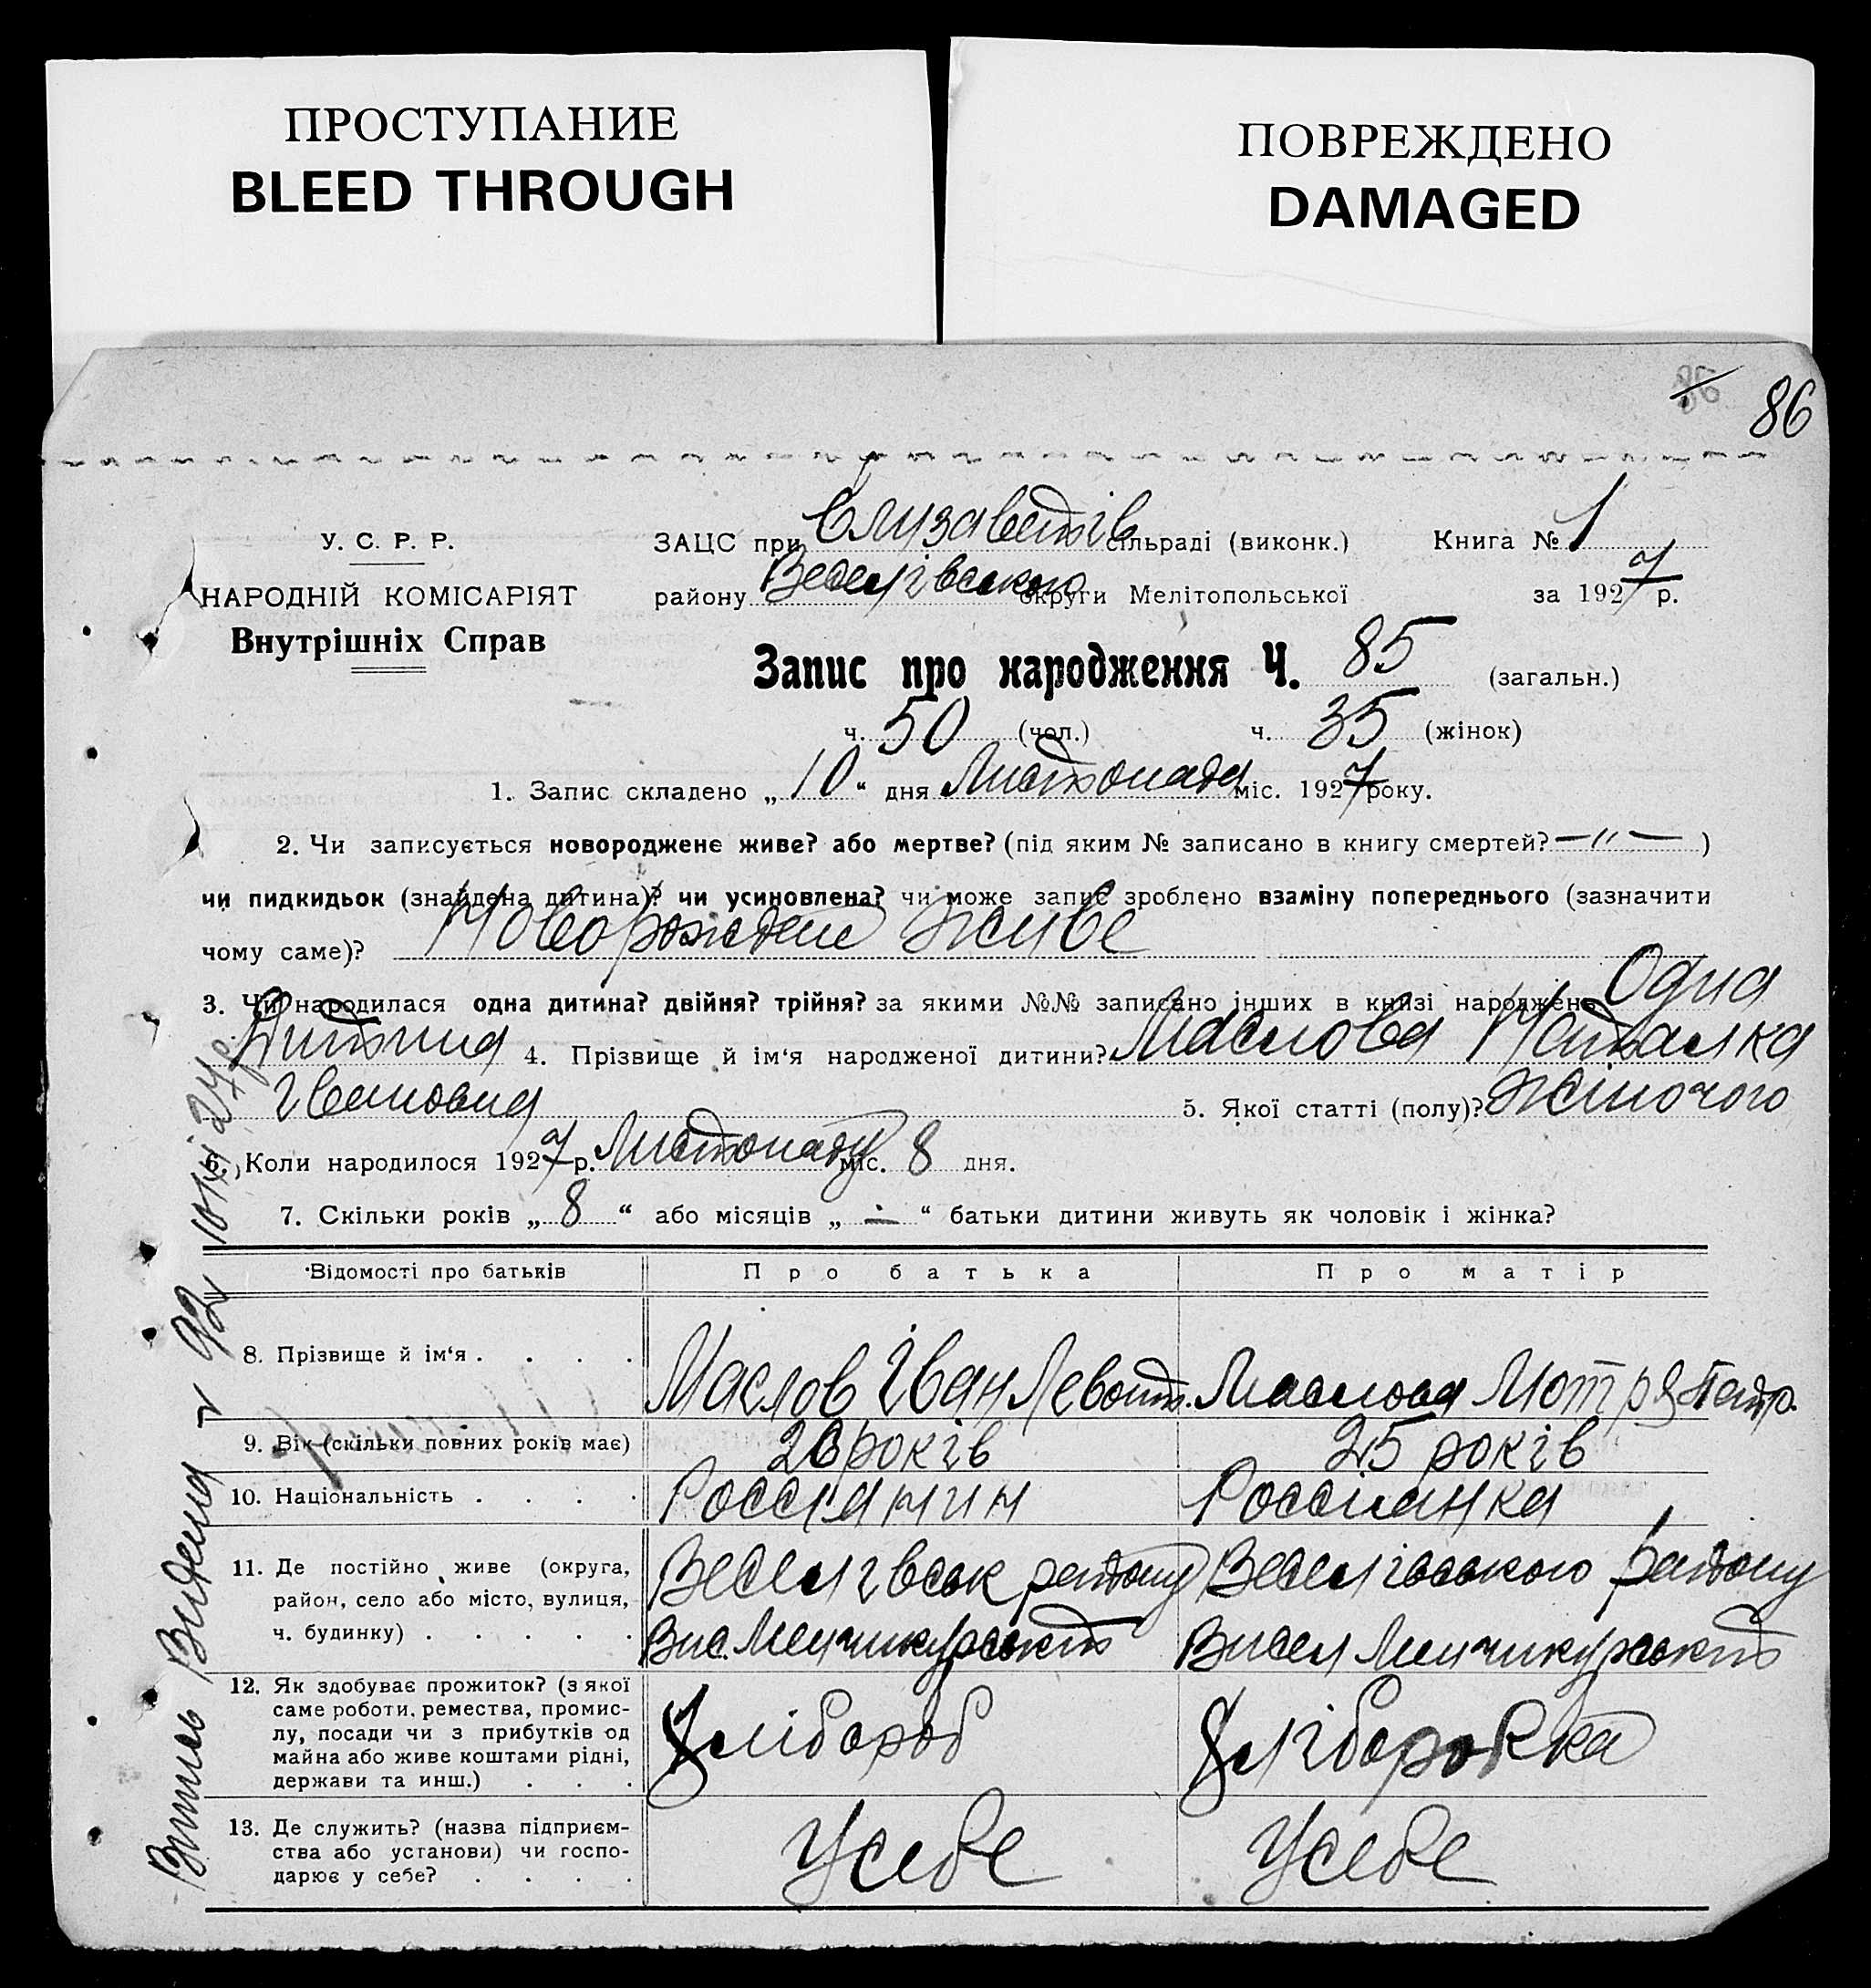 ПРОСТУПАНИЕ
BLEED THROUGH
ПОВРЕЖДЕНО
DAMAGED
86
У. С. Р. Р.
НАРОДНІЙ КОМІСАРІЯТ
Внутрішніх Справ
ЗАЦС при Єлизаветів сільраді (виконк.) Книга № 1
району Веселівського округи Мелітопольської за 1927 р.
Запис про народження Ч. 85 (загальн.)
ч. 50 (чол.) ч. 35 (жінок)
1. Запис складено „10“ дня Листопада міс. 1927 року.
2. Чи записується новороджене живе? або мертве? (під яким № записано в книгу смертей? —〃— )
чи пидкидьок (знайдена дитина)? чи усиновлена? чи може запис зроблено взаміну попереднього (зазначити
чому саме)? Новорождене живе
3. Чи народилася одна дитина? двійня? трійня? за якими №№ записано інших в книзі народжень Одна
Дитина 4. Прізвище й ім‘я народженої дитини? Маслова Наталка
Івановна 5. Якої статті (полу)? жіночого
6. Коли народилося 1927 р. Листопаду міс. 8 дня.
7. Скільки років „8“ або місяців „ ÷ “ батьки дитини живуть як чоловік і жінка?
Відомості про батьків Про батька Про матір
8. Прізвище й ім‘я . . . . Маслов Іван Левонт. Маслова Мотря Петр.
9. Вік (скільки повних років має) років 25 років
10. Національність . . . . Россіянин Россианка
11. Де постійно живе (округа,
район, село або місто, вулиця,
ч. будинку) . . . . .
Веселівськ району
Вис. Менчикурський
Веселівського району
Висел Менчикурський
12. Як здобуває прожиток? (з якої
саме роботи, ремества, промис-
лу, посади чи з прибутків од
майна або живе коштами рідні,
держави та инш.) . . .
Хлібороб
Хліборобка
13. Де служить? (назва підприєм-
ства або установи) чи госпо-
дарює у себе? . . . .
У себе
У себе